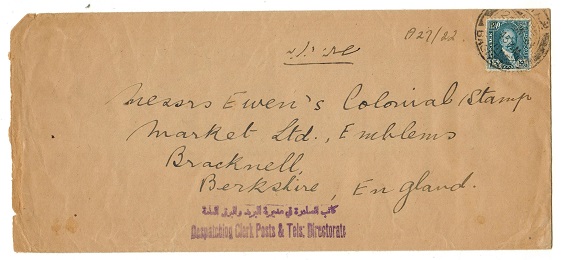 B27/22.
Messrs Ewen's Colonial Stamp
Market Ltd., Emblems
Bracknell,
Berkshire, England.
كاتب الصادرة في مديرية البريد والبرق العامة
Despatching Clerk Posts & Tels: Directorate